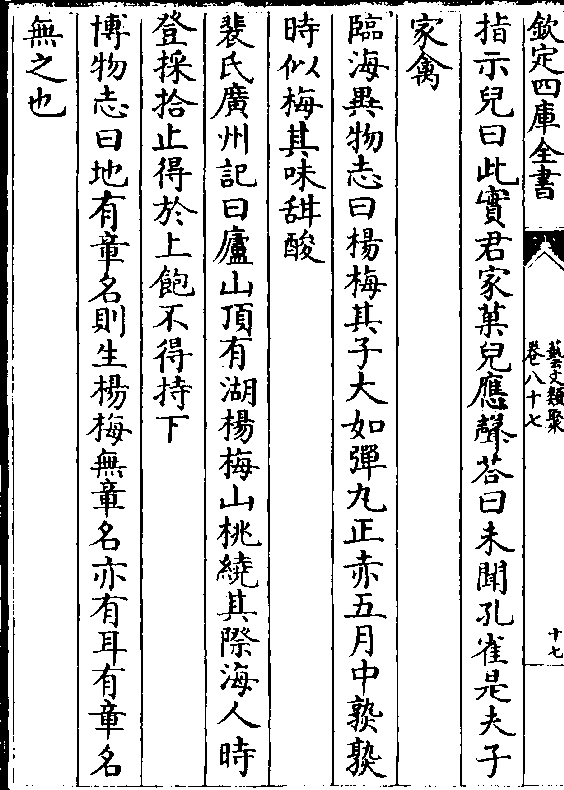 欽定四庫全書
藝文類聚
卷八十七
十七
指示兒曰此實君家菓兒應聲荅曰未聞孔雀是夫子
家禽
臨海異物志曰楊梅其子大如彈丸正赤五月中熟熟
時似梅其味甜酸
裴氏廣州記曰廬山頂有湖楊梅山桃繞其際海人時
登採拾止得於上飽不得持下
博物志曰地有章名則生楊梅無章名亦有耳有章名
無之也